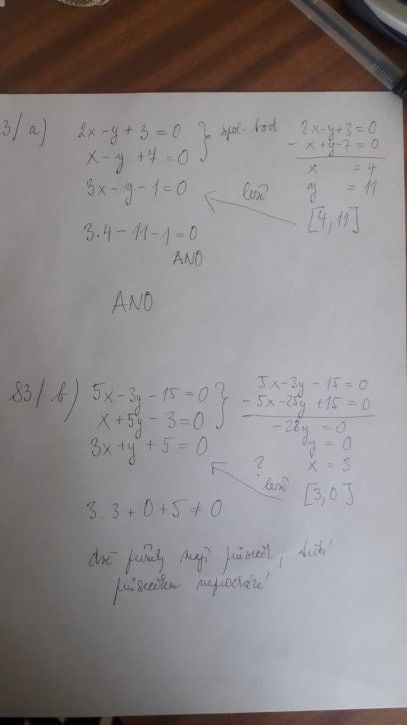 3/ a) 2x - y + 3 = 0 } spol. bod 2x - y + 3 = 0
x - y + 7 = 0 - x + y - 7 = 0
3x - y - 1 = 0 x = 4
leží y = 11
[4,11]
3.4 - 11 - 1 = 0
ANO
ANO
83/ b) 5x - 3y - 15 = 0 } 5x - 3y - 15 = 0
x + 5y - 3 = 0 - 5x - 25y + 15 = 0
3x + y + 5 = 0 - 28y = 0
y = 0
? x = 3
leží [3;0]
3.3 + 0 + 5 ≠ 0
dvě přímky mají průsečík, třetí
průsečíkem neprochází